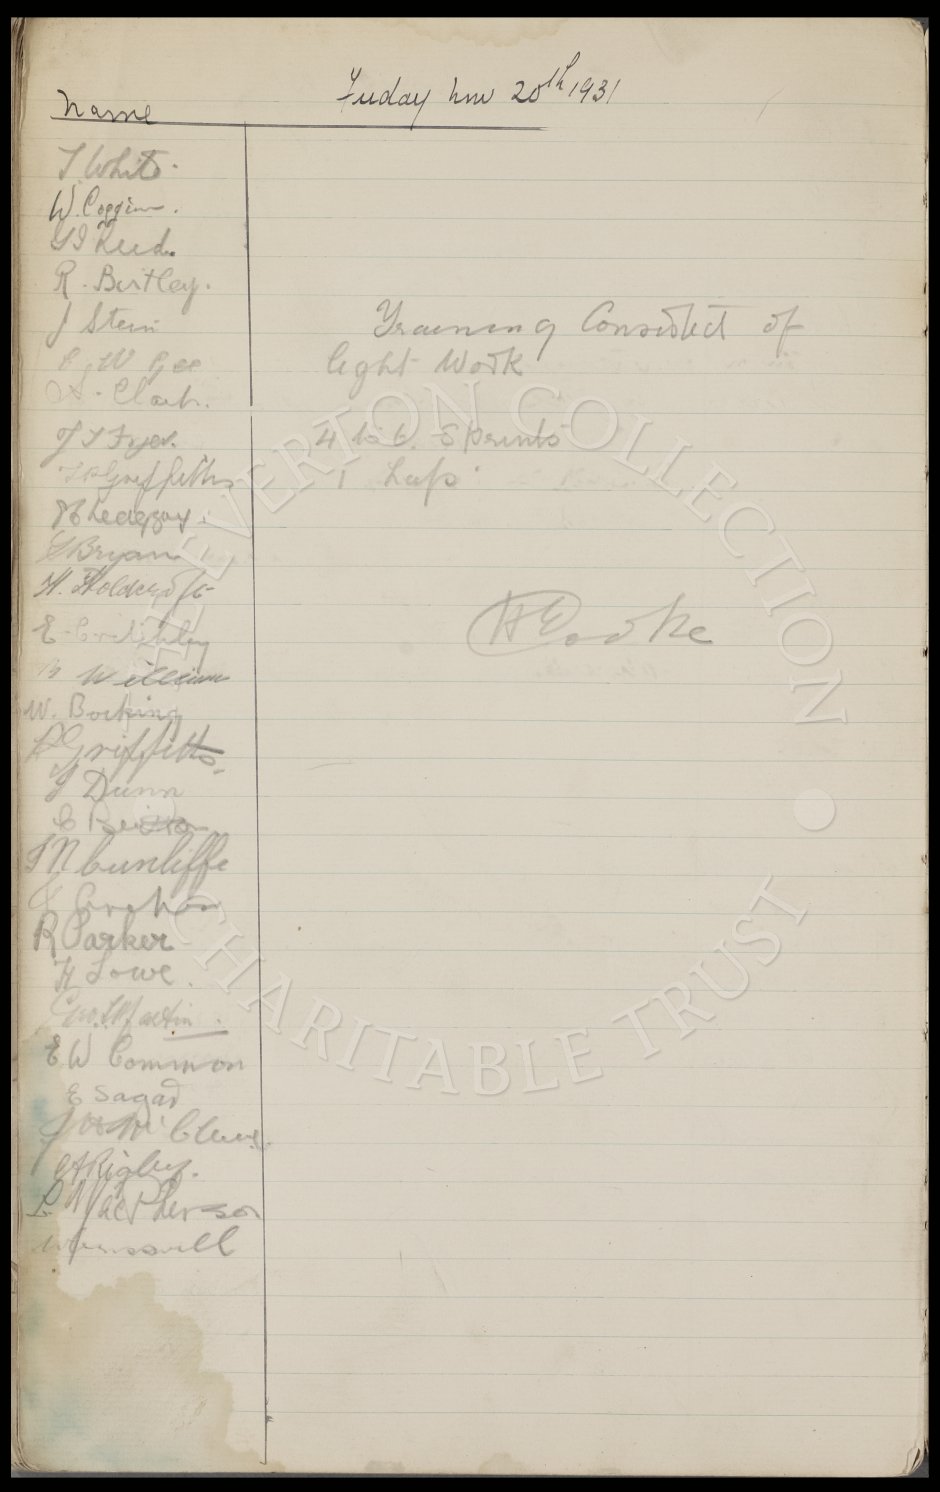 Friday Nov 20th 1931
Name
T. White.
W. Coggins.
R. Bentley.
J Stein
C. W Gee
A. Clark.
Training Consisted of
light Work
4 to 6 Sprints
1 Laps
P Griffiths
G Bryan
H. Holdcroft
E. Critchley
Williams
W. Bocking
P Griffiths
J Dunn
C
J N Cunliffe
R Parker
H Lowe.
Geo. S Martin.
E W Common
E Sagar
J Mc Clure.
A Rigby.
L MacPherson
H E Cooke
THE EVERTON COLLECTION
CHARITABLE TRUST